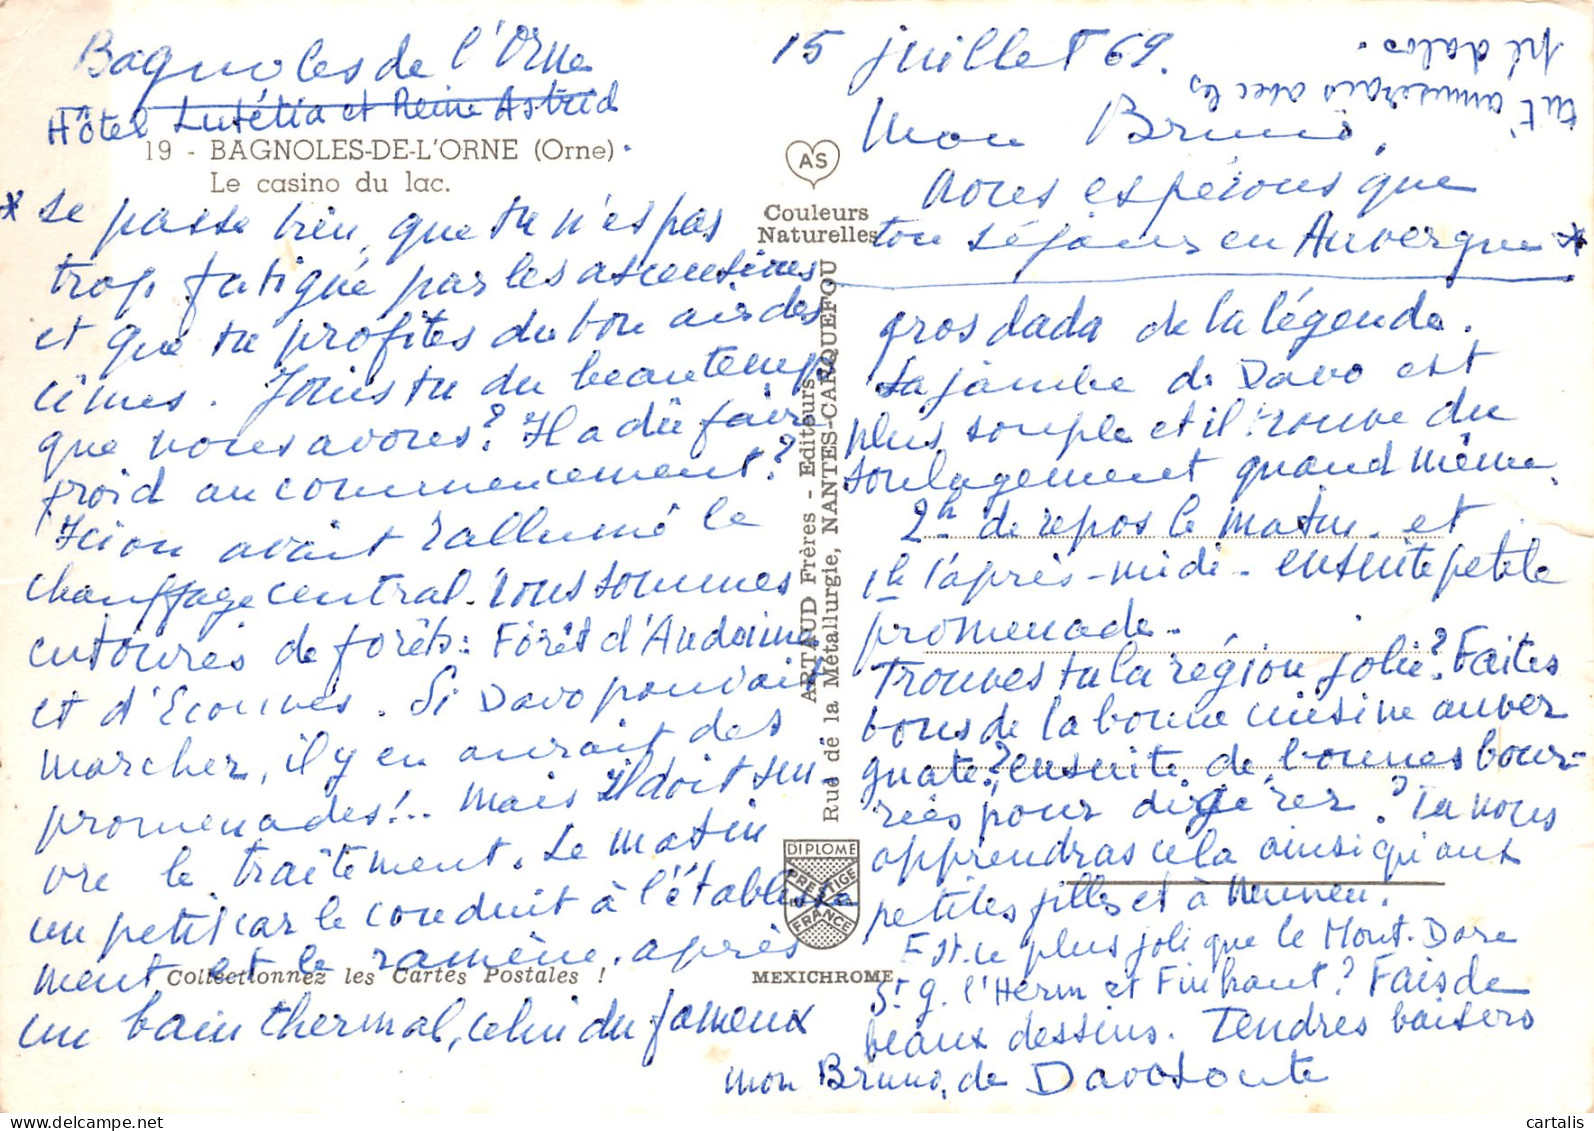 Bagnoles de l'Orne
Hôtel Lutétia et Reine Astrid
19 - BAGNOLES-DE-L'ORNE (Orne).
Le casino du lac.
15 juillet 69.
Mon Bruno,
nous espérons que
ton séjour en Auvergne *
* se passe bien, que tu n'es pas
trop fatigué par les ascensions
et que tu profites du bon air des
cîmes. Jouis tu du beau temps
que nous avons? Il a dû faire
froid au commencement?
Ici on avait rallumé le
chauffage central. Nous sommes
entourés de forêts: Forêt d'Andaine
et d'Ecouves. Si Davo pouvait
marcher, il y en aurait des
promenades!.. Mais il doit sui-
vre le traîtement. Le matin
un petit car le conduit à l'établisse
ment et le ramène. après
un bain thermal, celui du fameux
gros dada de la légende.
La jambe de Davo est
plus souple et il trouve du
soulagement quand même.
2h de repos le matin et
1h l'après-midi - ensuite petite
promenade.
Trouves tu la région jolie? Faites
vous de la bonne cuisine auver
gnate? ensuite de bonnes bour-
rées pour digérer? Tu nous
apprendras cela ainsi qu'aux
petites filles et à Nounou.
Est-ce plus joli que le Mont-Dore
St. g. l'Herm et Finhaut? Fais de
beaux dessins. Tendres baisers
mon Bruno, de Davotoute
tu t'amuserais avec les
pédalos.
AS
Couleurs
Naturelles
ARTAUD Frères - Editeurs
Rue de la Métallurgie, NANTES-CARQUEFOU
DIPLOME
PRESTIGE
DE
FRANCE
MEXICHROME
Collectionnez les Cartes Postales !
cartalis